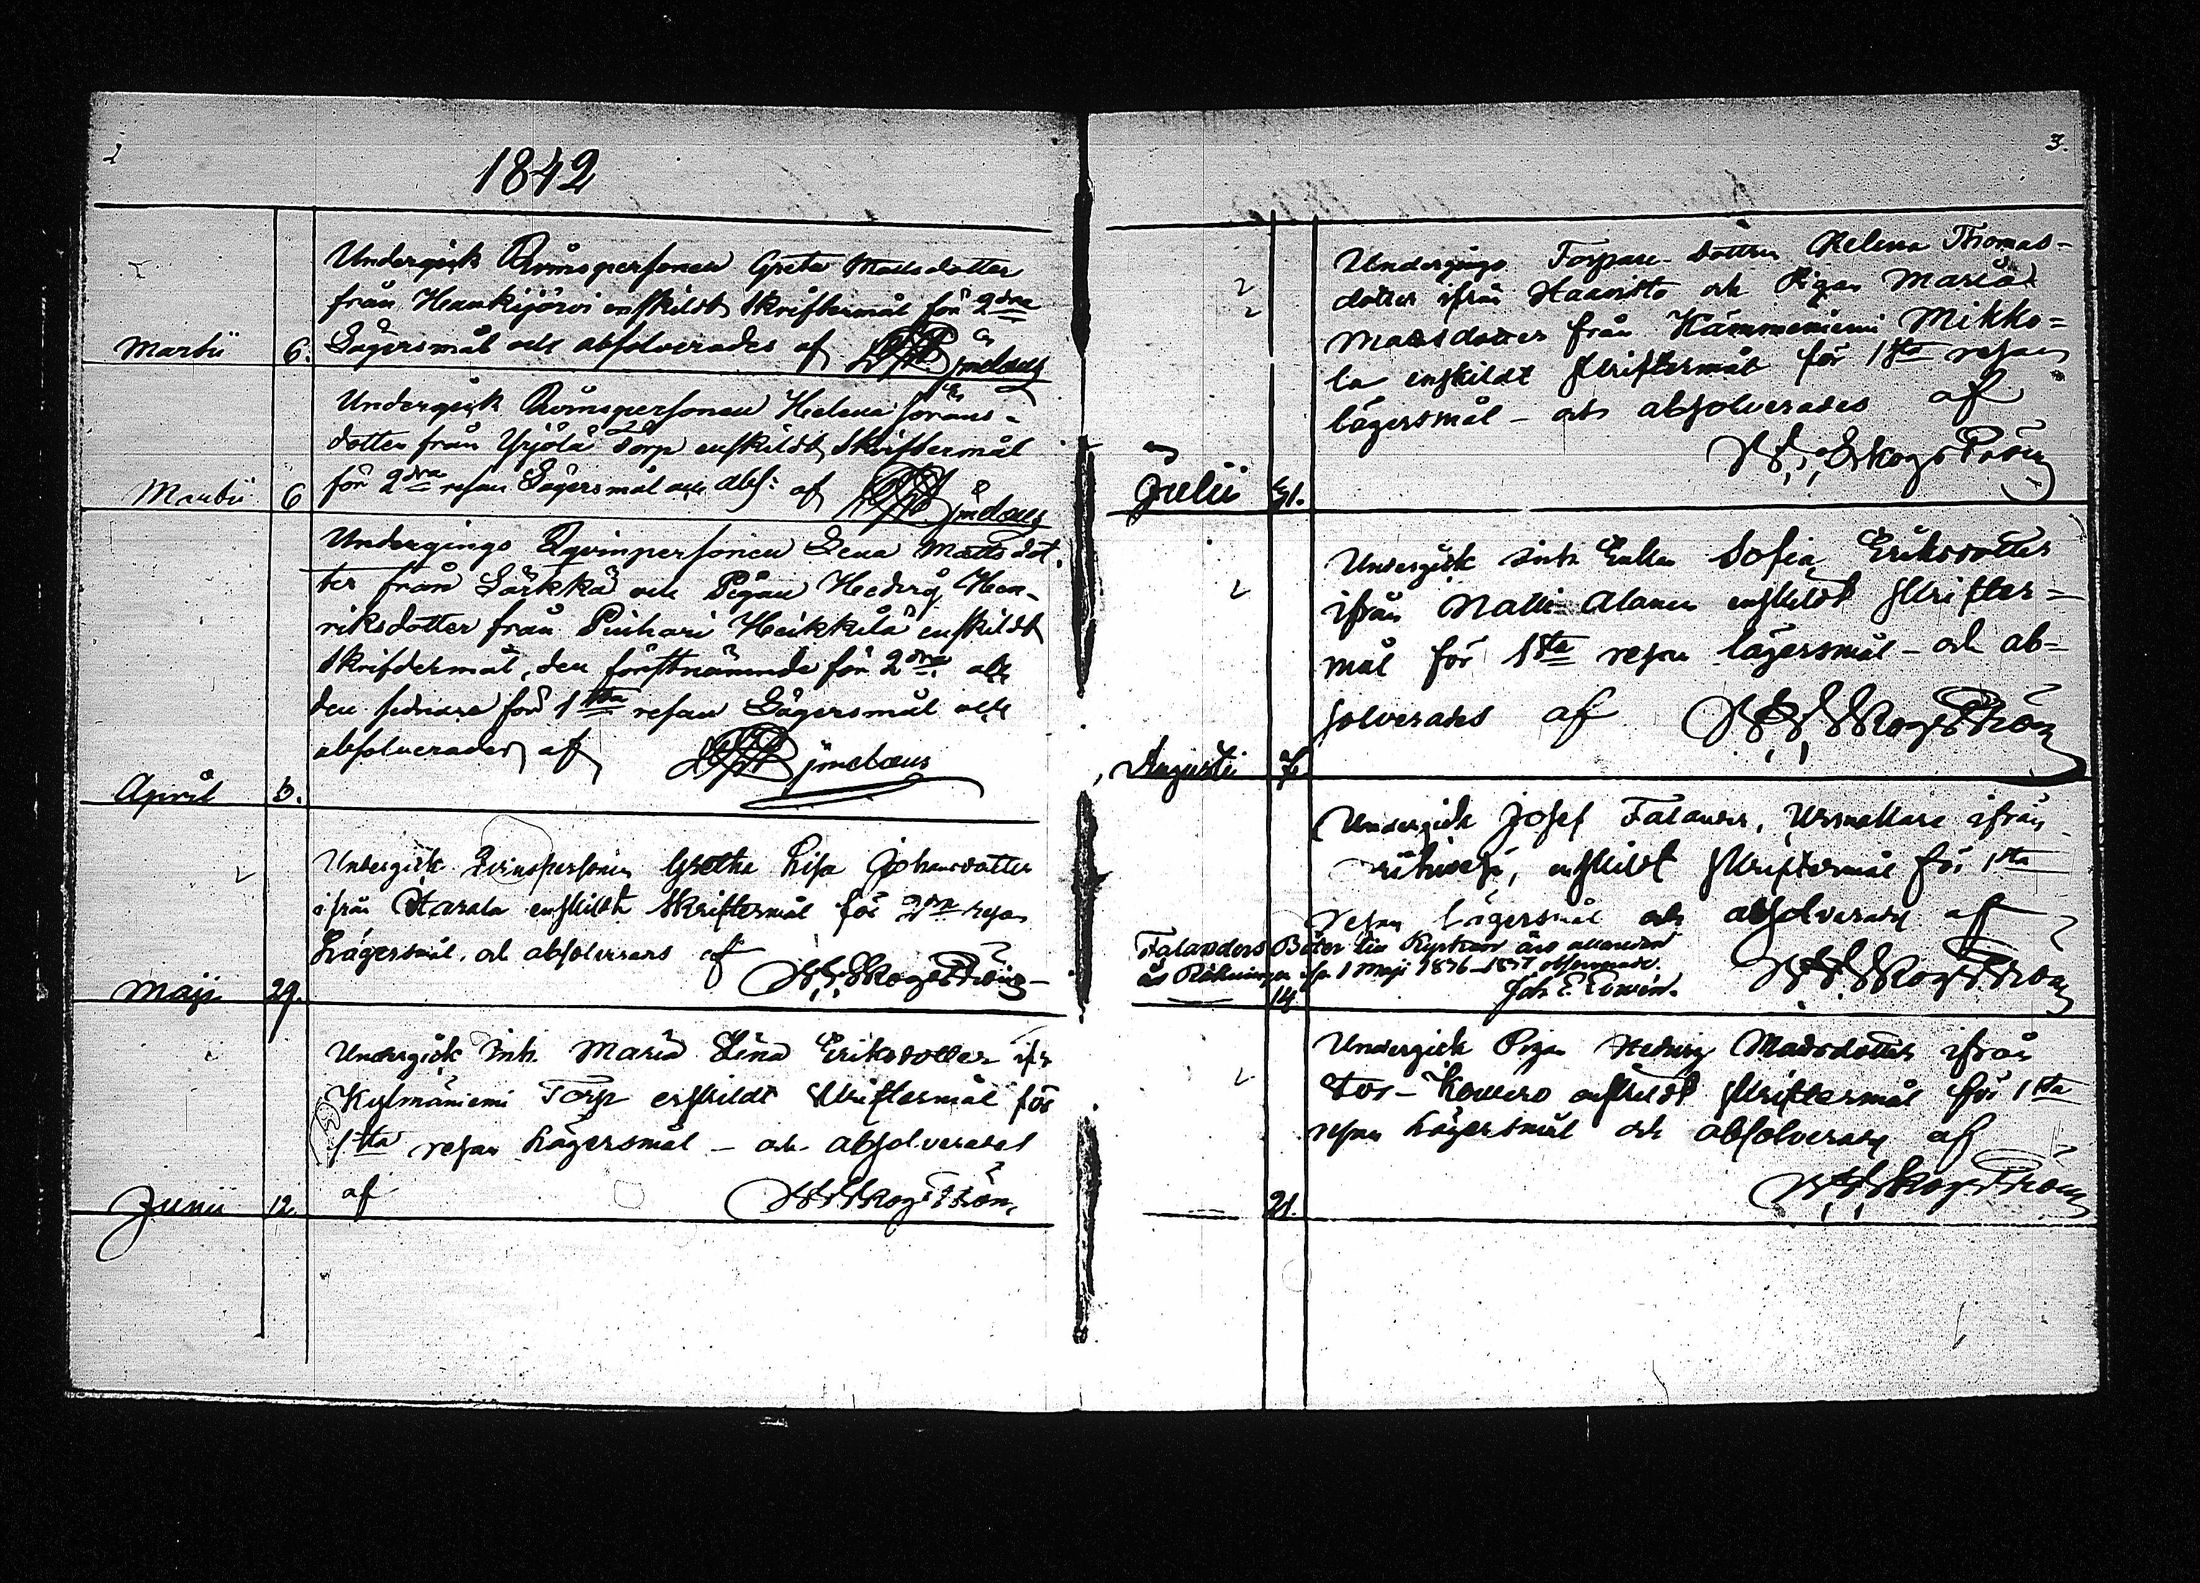 2
1842
Undergick Qvinspersonen Greta Mattsdotter
från Hankijärvi enskildt Skriftermål för 2dra
Martii 6. Lägersmål och absolverades af
Undergick Qvinspersonen Helena Görans-
dotter från Yrjölä Torp enskildt Skriftermål
Martii 6 för 2dra resan Lägersmål och abs: af
Undergingo Qvinspersonen Lena Mattsdot-
ter från Särkkä och Pigan Hedvig Hen-
riksdotter från Pinhari Heikkilä enskildt
skriftermål, den förstnämnde för 2dra och
den sednare för 1sta resan Lägersmål och
absolverades af
April 3.
Undergick Qvinspersonen Gretha Lisa Johansdotter
ifrån Harala enskildt Skriftermål för 2dra resan
Lägersmål och absolverades af
Maji 29. Skogström
Undergick Inh. Maria Lena Eriksdotter ifr
Kylmäniemi Torp enskildt Skriftermål för
1sta resan Lägersmål – och absolverades
Junii 12. af Skogström
3.
Undergingo Torpare-Dottren Helena Thomas-
dotter ifrån Haavisto och Pigan Maria
Mattsdotter från Kämmeniemi Mikko=
la enskildt skriftermål för 1sta resan
lägersmål – och absolverades af
Skogström
Julii 31.
Undergick Inh. Enkan Sofia Eriksdotter
ifrån Nalli Alanen enskildt skrifter=
mål för 1sta resan lägersmål – och ab=
solverades af Skogström
Augusti 7.
Undergick Josef Falander, Urmakare ifrån
enskildt skriftermål för 1sta
resan lägersmål och absolverades af
Falanders Böter till Kyrkan äro
Räkningen 1 Maji 1836–1837
Joh. E.
14. Skogström
Undergick Pigan Hedvig Mattsdotter ifrån
Kovero enskildt skriftermål för 1sta
resan Lägersmål och absolverades af
Skogström
21.